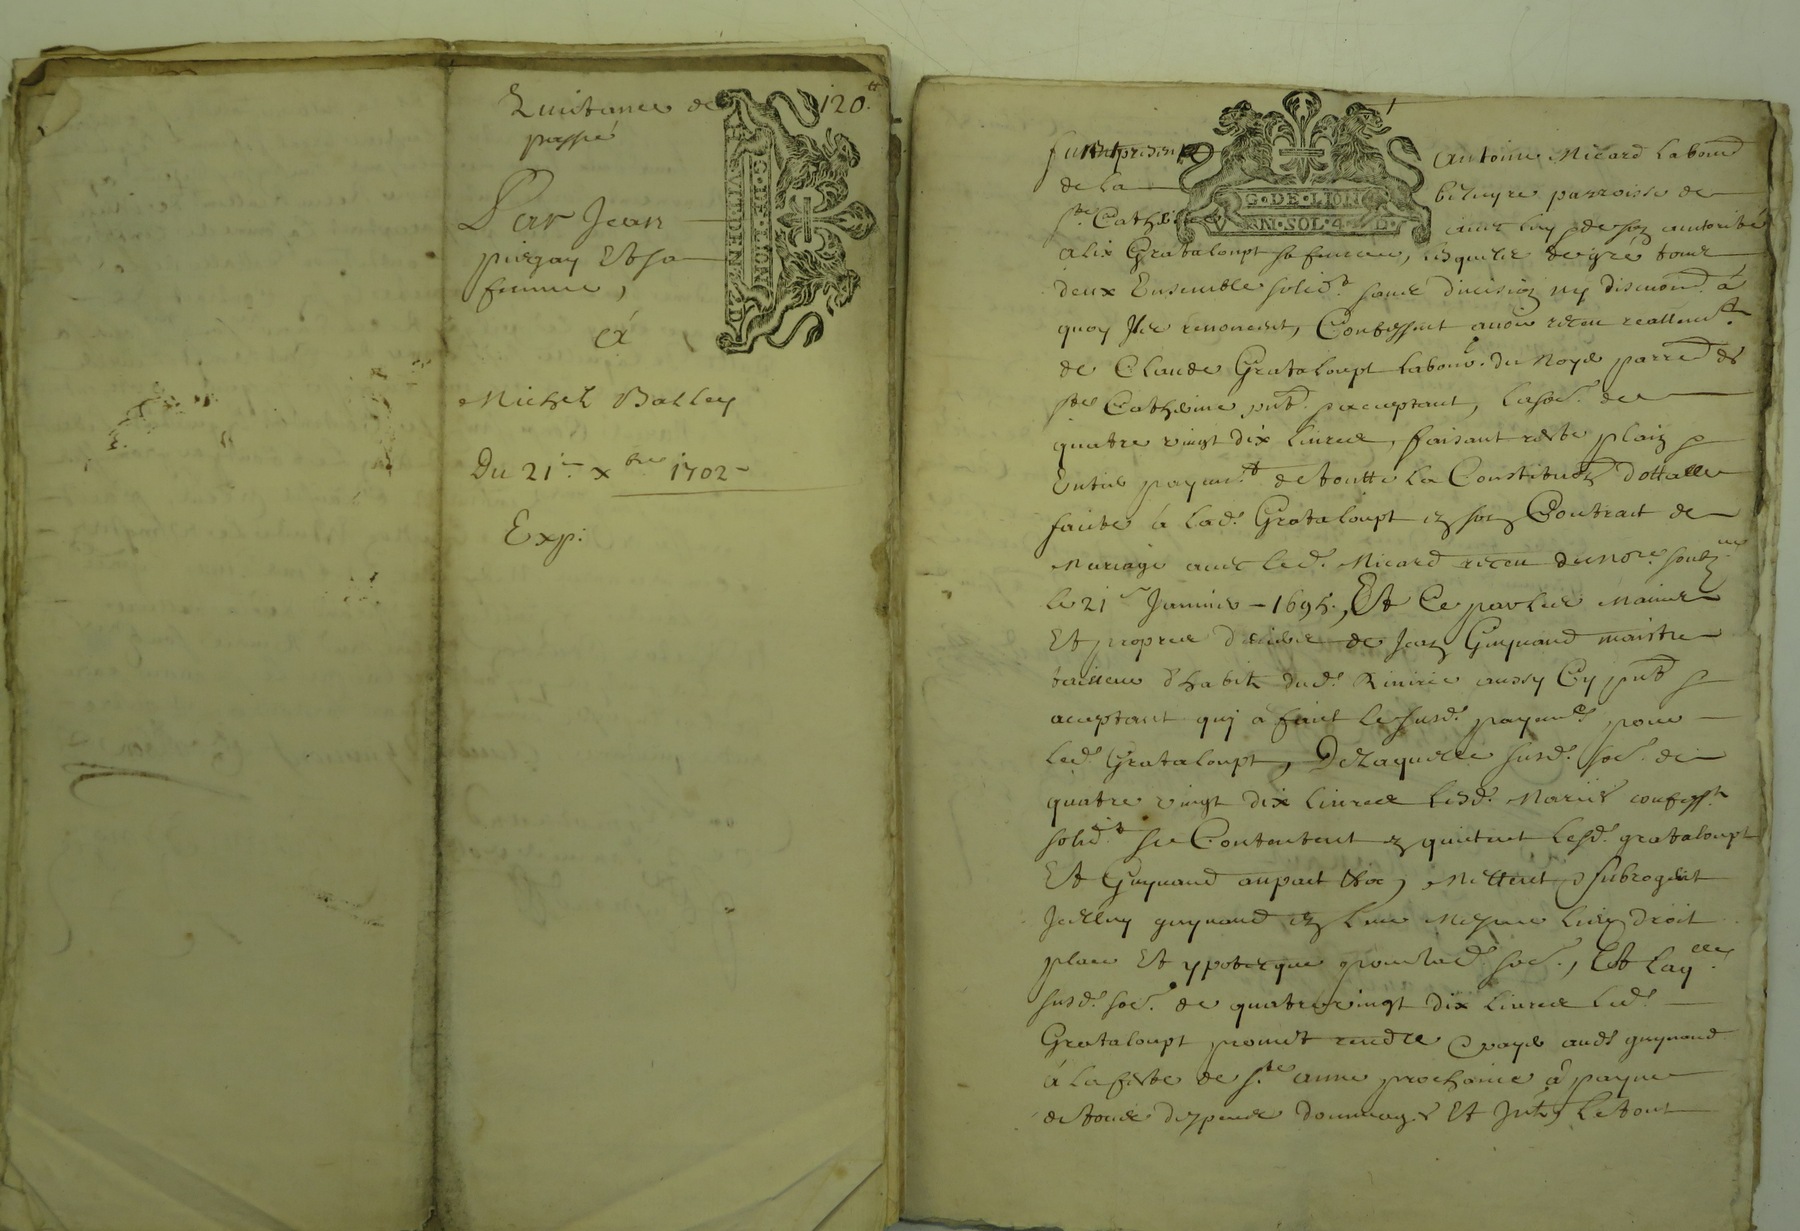 Quittance de 120.tt
passé
Par Jean
piegay Et sa
femme,
à
Michel Balley
Du 21e xbre 1702
Exp:
G·DE·LION
Furent presents Antoine Micard Labourd
G·DE·LION
de la parroisse de
VN·SOL·4·D·
ste Catherine avec luy de son autorité
alix Grataloupt sa femme, lesquels de gré tous
deux Ensemble solidt. sans division ny discuond. à
quoy Ils renoncent, Confessent avoir receu reallemt.
de Claude Grataloupt Labour. du Noyé parred. de
ste Catherine pnt. acceptant, la soe. de
quatre vingt dix Livres, faisant reste plain &
Entier payemt. de toutte la Constituon dottalle
faitte à lad. Grataloupt en son Contrat de
Mariage avec led. Micard receu du nore. soubz.né
le 21e Janvier 1695, Et Ce par les Mains
Et propres deniers de Jean Guynand maistre
tailleur d'habitz dud. Riverie aussy Cy pnt &
acceptant quj a faict le susd. payemt. pour
led. Grataloupt, De laquelle susd. soe. de
quatre vingt dix Livres lesd. Mariés confesst.
solidt. se Contentent & quittent lesd. grataloupt
Et Guynand Mettent & subrogent
Jcelluy guynand en leur Mesme lieu droit
place Et ypotecque pour lad. soe., Et laqlle.
susd. soe. de quatre vingt dix Livres led.
Grataloupt promet rendre & payé aud. guynand
à la feste de ste anne prochaine à payne
de tous despens dommages Et Jntz Le tout